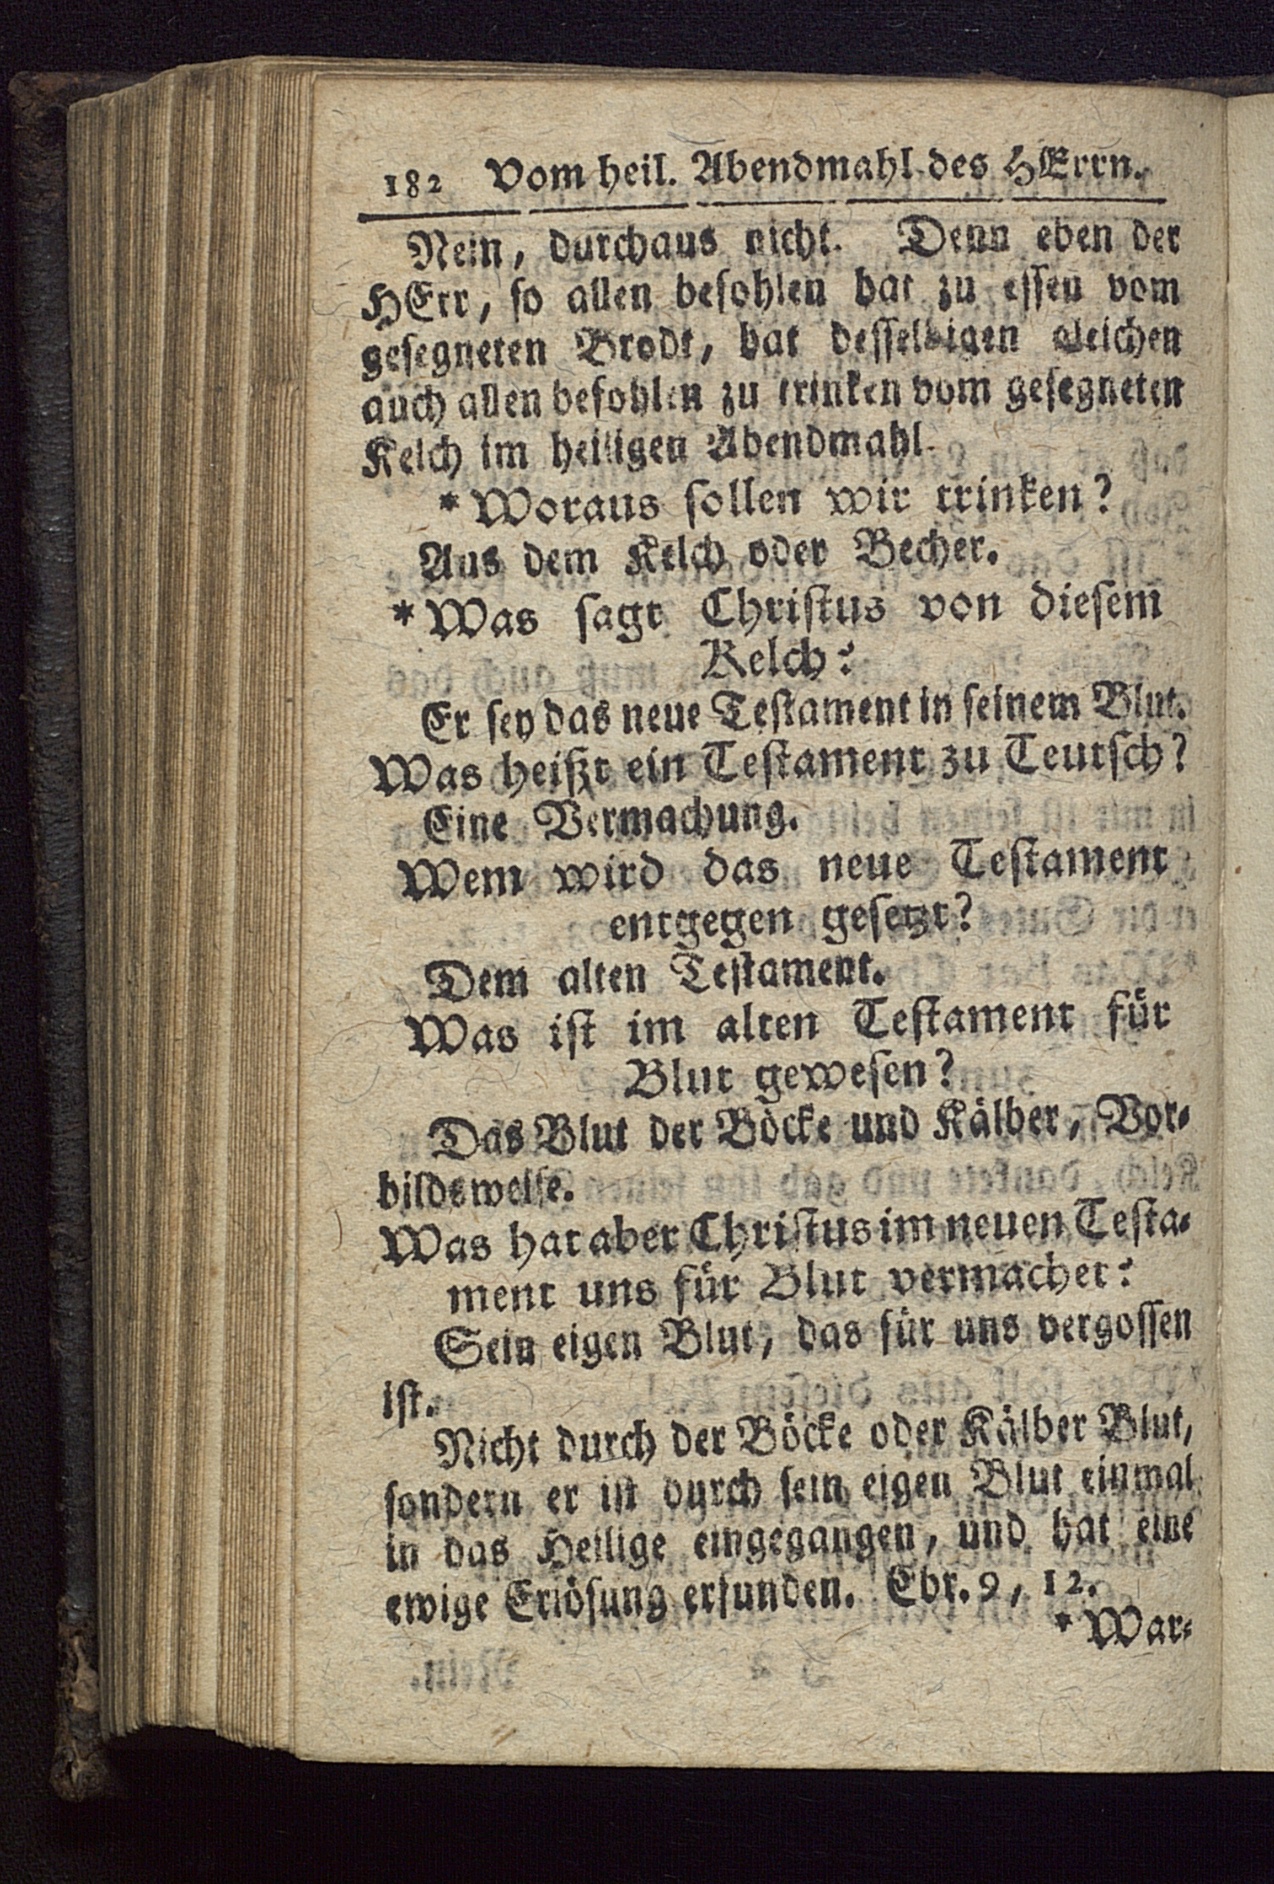 182 Vom heil. Abendmahl des HErrn.
Nein, durchaus nicht. Denn eben der
HErr, so allen befohlen hat zu essen vom
gesegneten Brodt, hat desselbigen gleichen
auch allen befohlen zu trinken vom gesegneten
Kelch im heiligen Abendmahl.
* Woraus sollen wir trinken?
Aus dem Kelch oder Becher.
* Was sagt Christus von diesem
Kelch?
Er sey das neue Testament in seinem Blut.
Was heißt ein Testament zu Teutsch?
Eine Vermachung.
Wem wird das neue Testament
entgegen gesetzt?
Dem alten Testament.
Was ist im alten Testament für
Blut gewesen?
Das Blut der Böcke und Kälber, Vor-
bildsweise.
Was hat aber Christus im neuen Testa-
ment uns für Blut vermachet?
Sein eigen Blut, das für uns vergossen
ist.
Nicht durch der Böcke oder Kälber Blut,
sondern er ist durch sein eigen Blut einmal
in das Heilige eingegangen, und hat eine
ewige Erlösung erfunden. Ebr. 9, 12.
* War-